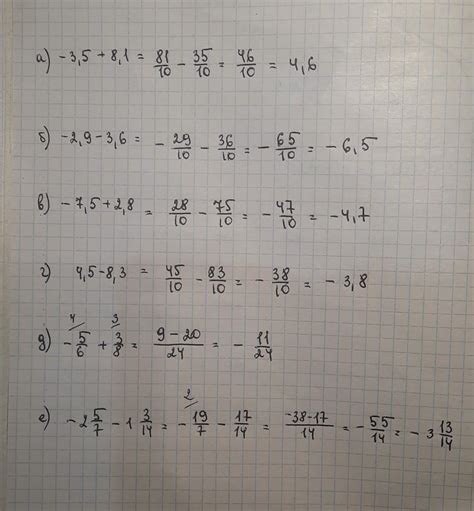 а) -3,5 + 8,1 = 81/10 - 35/10 = 46/10 = 4,6
б) -2,9 - 3,6 = - 29/10 - 36/10 = - 65/10 = - 6,5
в) -7,5 + 2,8 = 28/10 - 75/10 = - 47/10 = -4,7
г) 4,5 - 8,3 = 45/10 - 83/10 = - 38/10 = - 3,8
4 3
д) - 5/6 + 3/8 = 9 - 20/24 = - 11/24
2
е) -2 5/7 - 1 3/14 = - 19/7 - 17/14 = -38-17/14 = - 55/14 = - 3 13/14